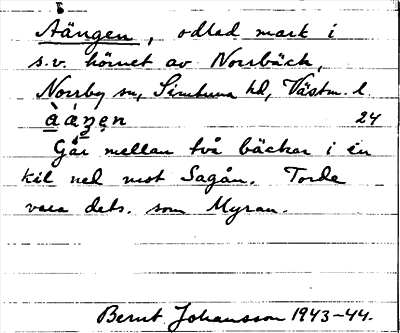 Åängen, odlad mark i
s.v. hörnet av Norrbäck,
Norrby sn, Simtuna hd, Västm. l.
24
Går mellan två bäckar i en
kil ned mot Sagån. Torde
vara dets. som Myran.
Bernt Johansson 1943-44.